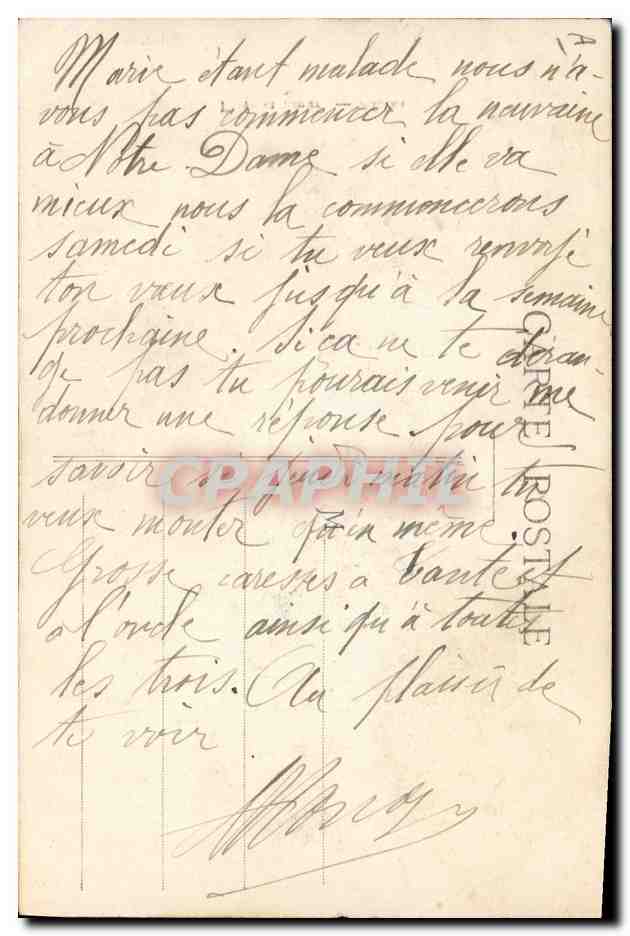 Marie étant malade nous n'a-
vons pas commencer la neuvaine
à Notre Dame si elle va
mieux nous la commencerons
samedi si tu veux renvoyé
ton vœux jusqu'à la semaine
prochaine. Si ca ne te déran-
ge pas tu pourais venir me
donner une réponse pour
savoir si jeudi matin tu
veux monter quén même.
Grosse caresses a tante et
a l'oncle ainsi qu'à toutes
les trois. Au plaisir de
te voir
CARTE POSTALE
CPAPHIL
A